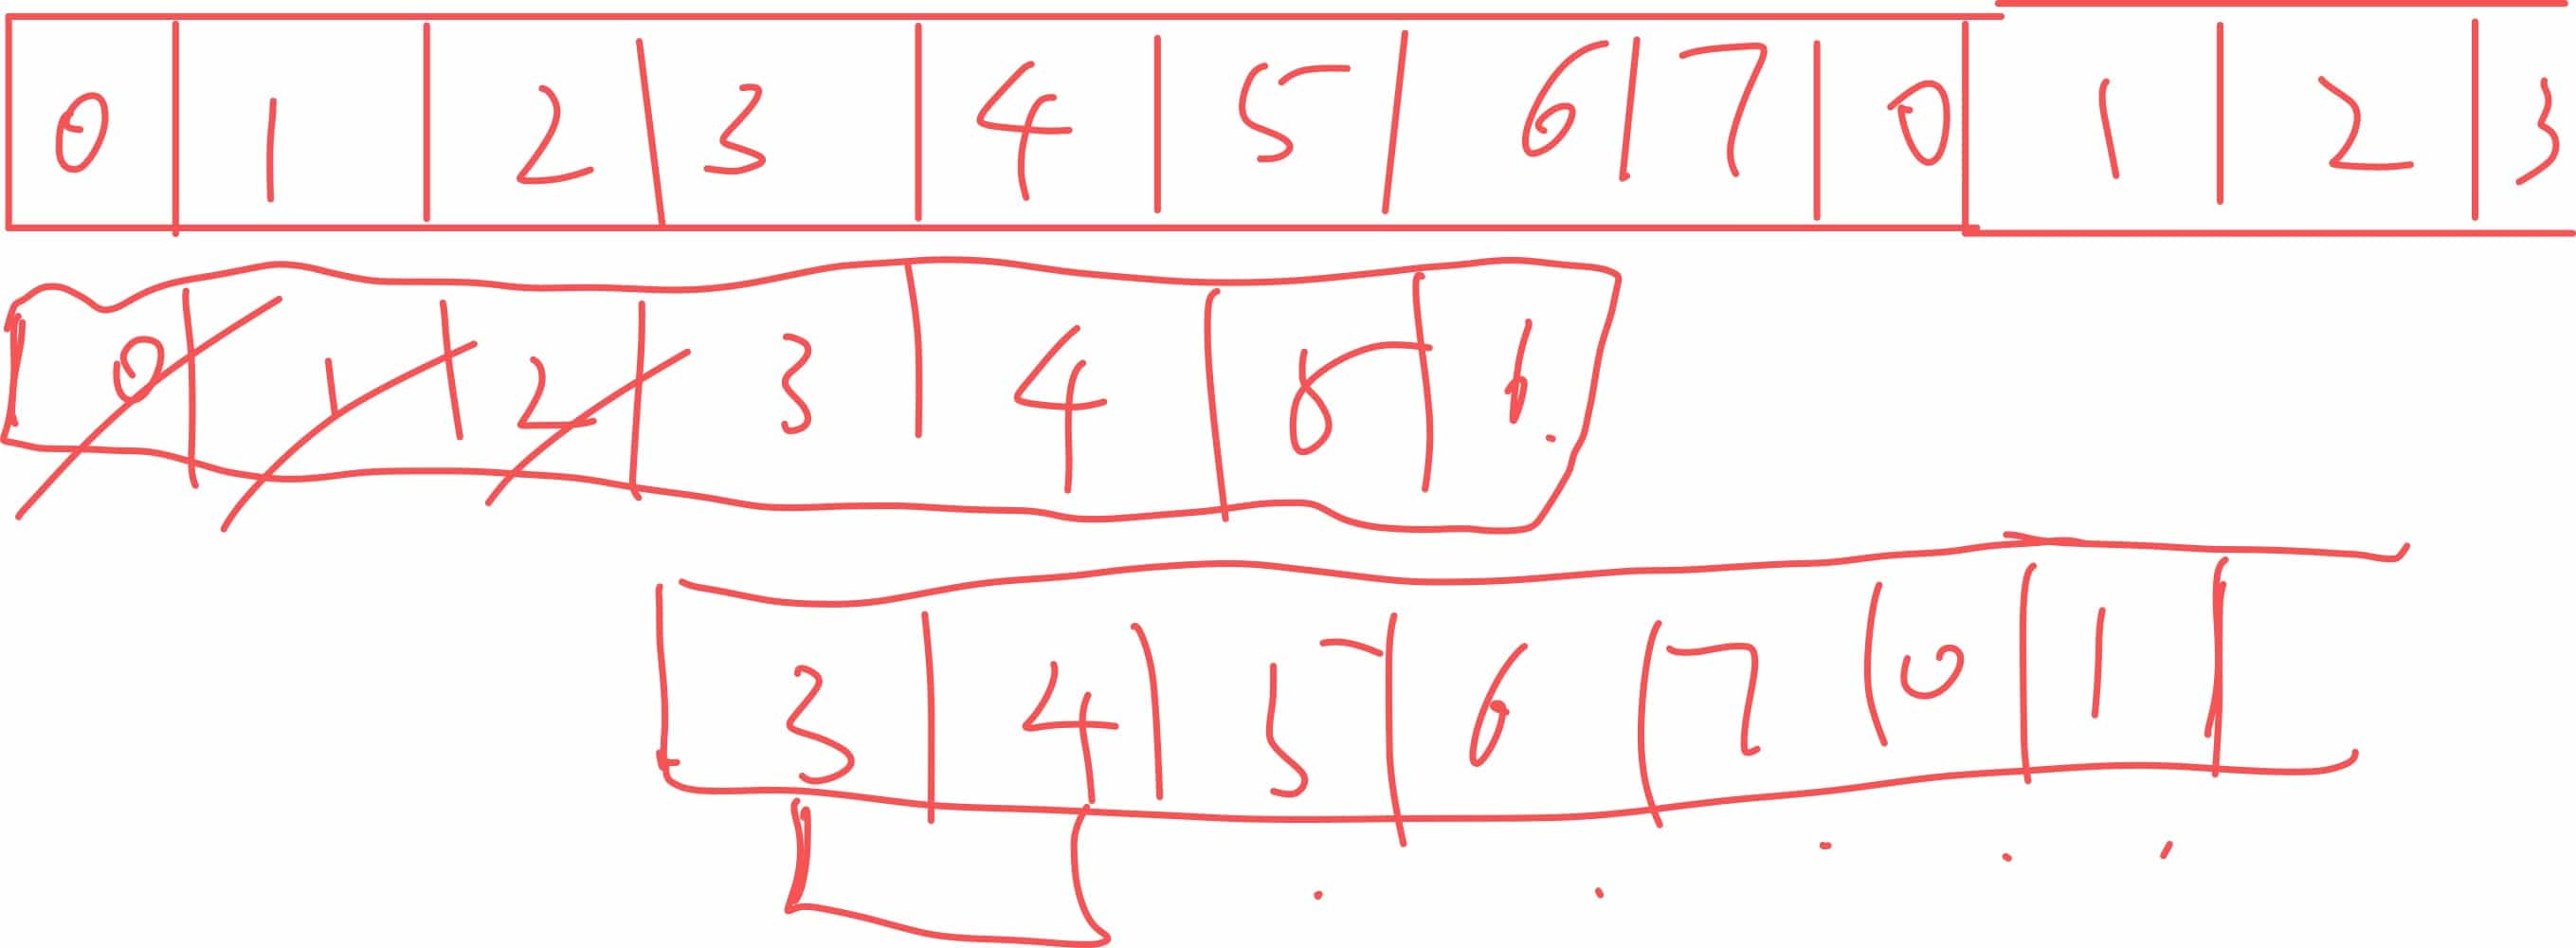 0 1 2 3 4 5 6 7 0 1 2 3
0 1 2 3 4 5
3 4 5 6 7 0 1